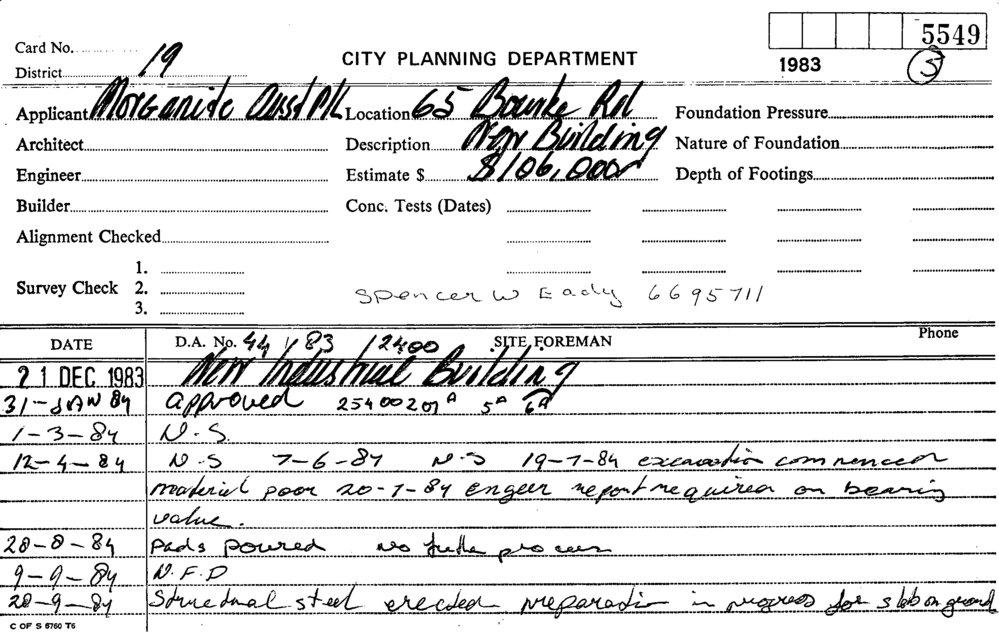 5549
Card No. 19
CITY PLANNING DEPARTMENT
1983 5
District
Applicant Morganite Aust P/L Location 65 Bourke Rd Foundation Pressure
Architect Description New Building Nature of Foundation
Engineer Estimate $ $106,000 Depth of Footings
Builder Conc. Tests (Dates)
Alignment Checked
1.
Survey Check 2. Spencer W Eady 6695711
3.
DATE D.A. No. 44/83/2400 SITE FOREMAN Phone
21 DEC 1983 New Industrial Building
31-JAN 84 approved 5A 6A
1-3-84 N.S.
12-4-84 N.S 7-6-84 N-S 19-7-84 excavation commenced
material poor 20-7-84 engeer report required on bearing
value.
28-8-84 Pads poured no
9-9-84 N.F.P
28-9-84 Structural steel erected preparation in progress for slab on ground
C OF S 5760 T6